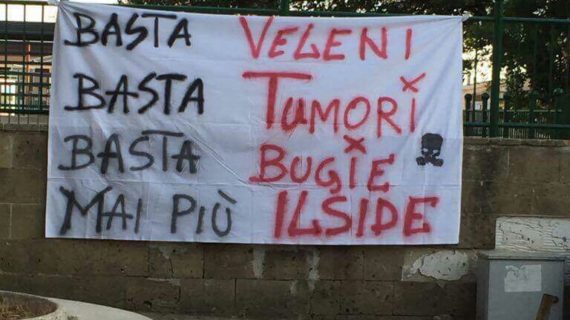 BASTA VELENI
BASTA TUMORI
BASTA BUGIE
MAI PIÙ ILSIDE